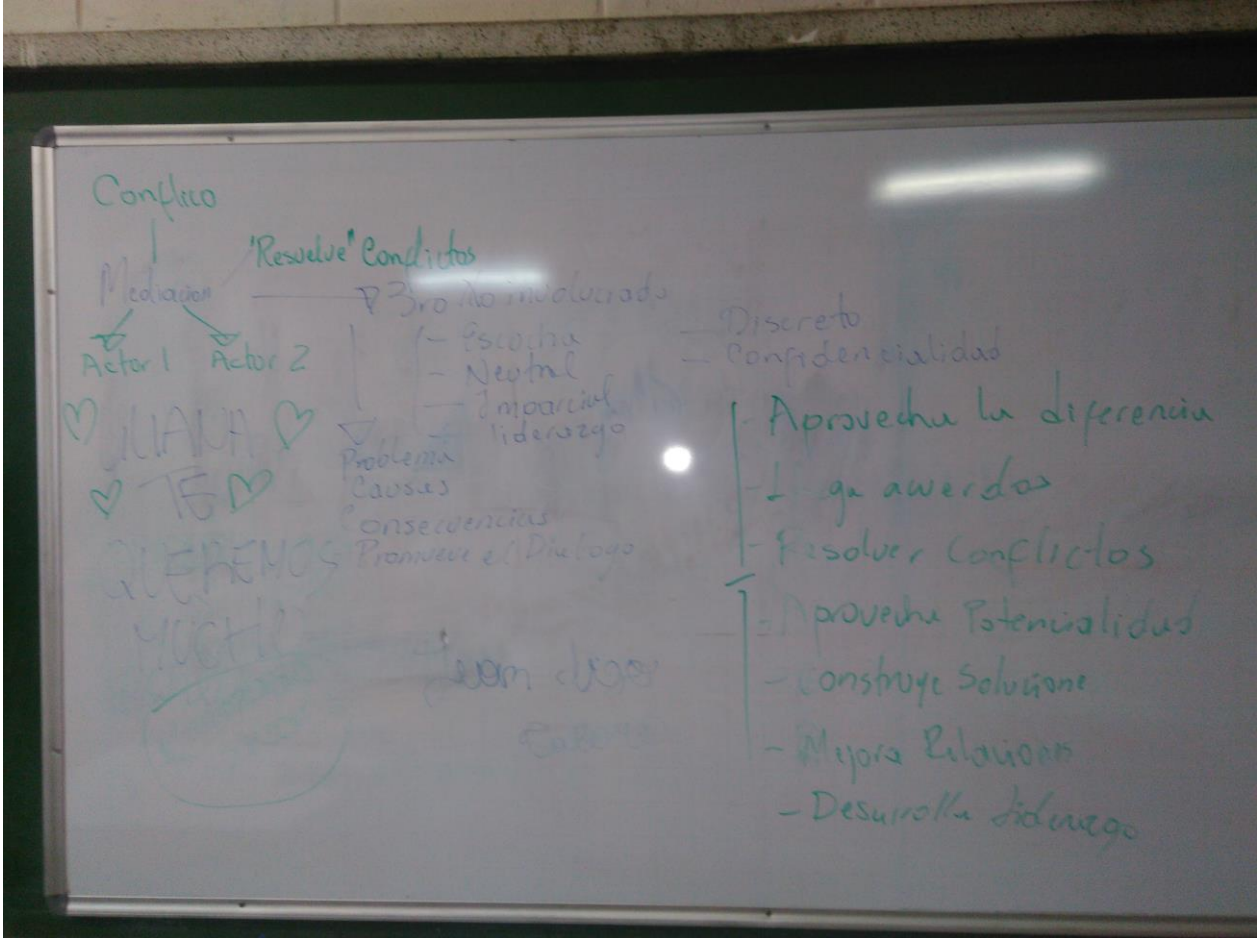 Conflico
"Resuelve" Conflictos
Mediacion
3ro No involucrado
Actor 1 Actor 2
- Escocha
- Neutral
- Imparcial
- liderazgo
- Discreto
- Confidencialidad
Problema
Causas
Consecuencias
Promueve el Dialogo
JUANA
TE
QUEREMOS
MUCHO
- Aprovecha la diferencia
acuerdos
- Resolver Conflictos
- Aprovecha Potencialidad
- Construye Solucione
- Mejora Relaciones
- Desarrolla liderazgo